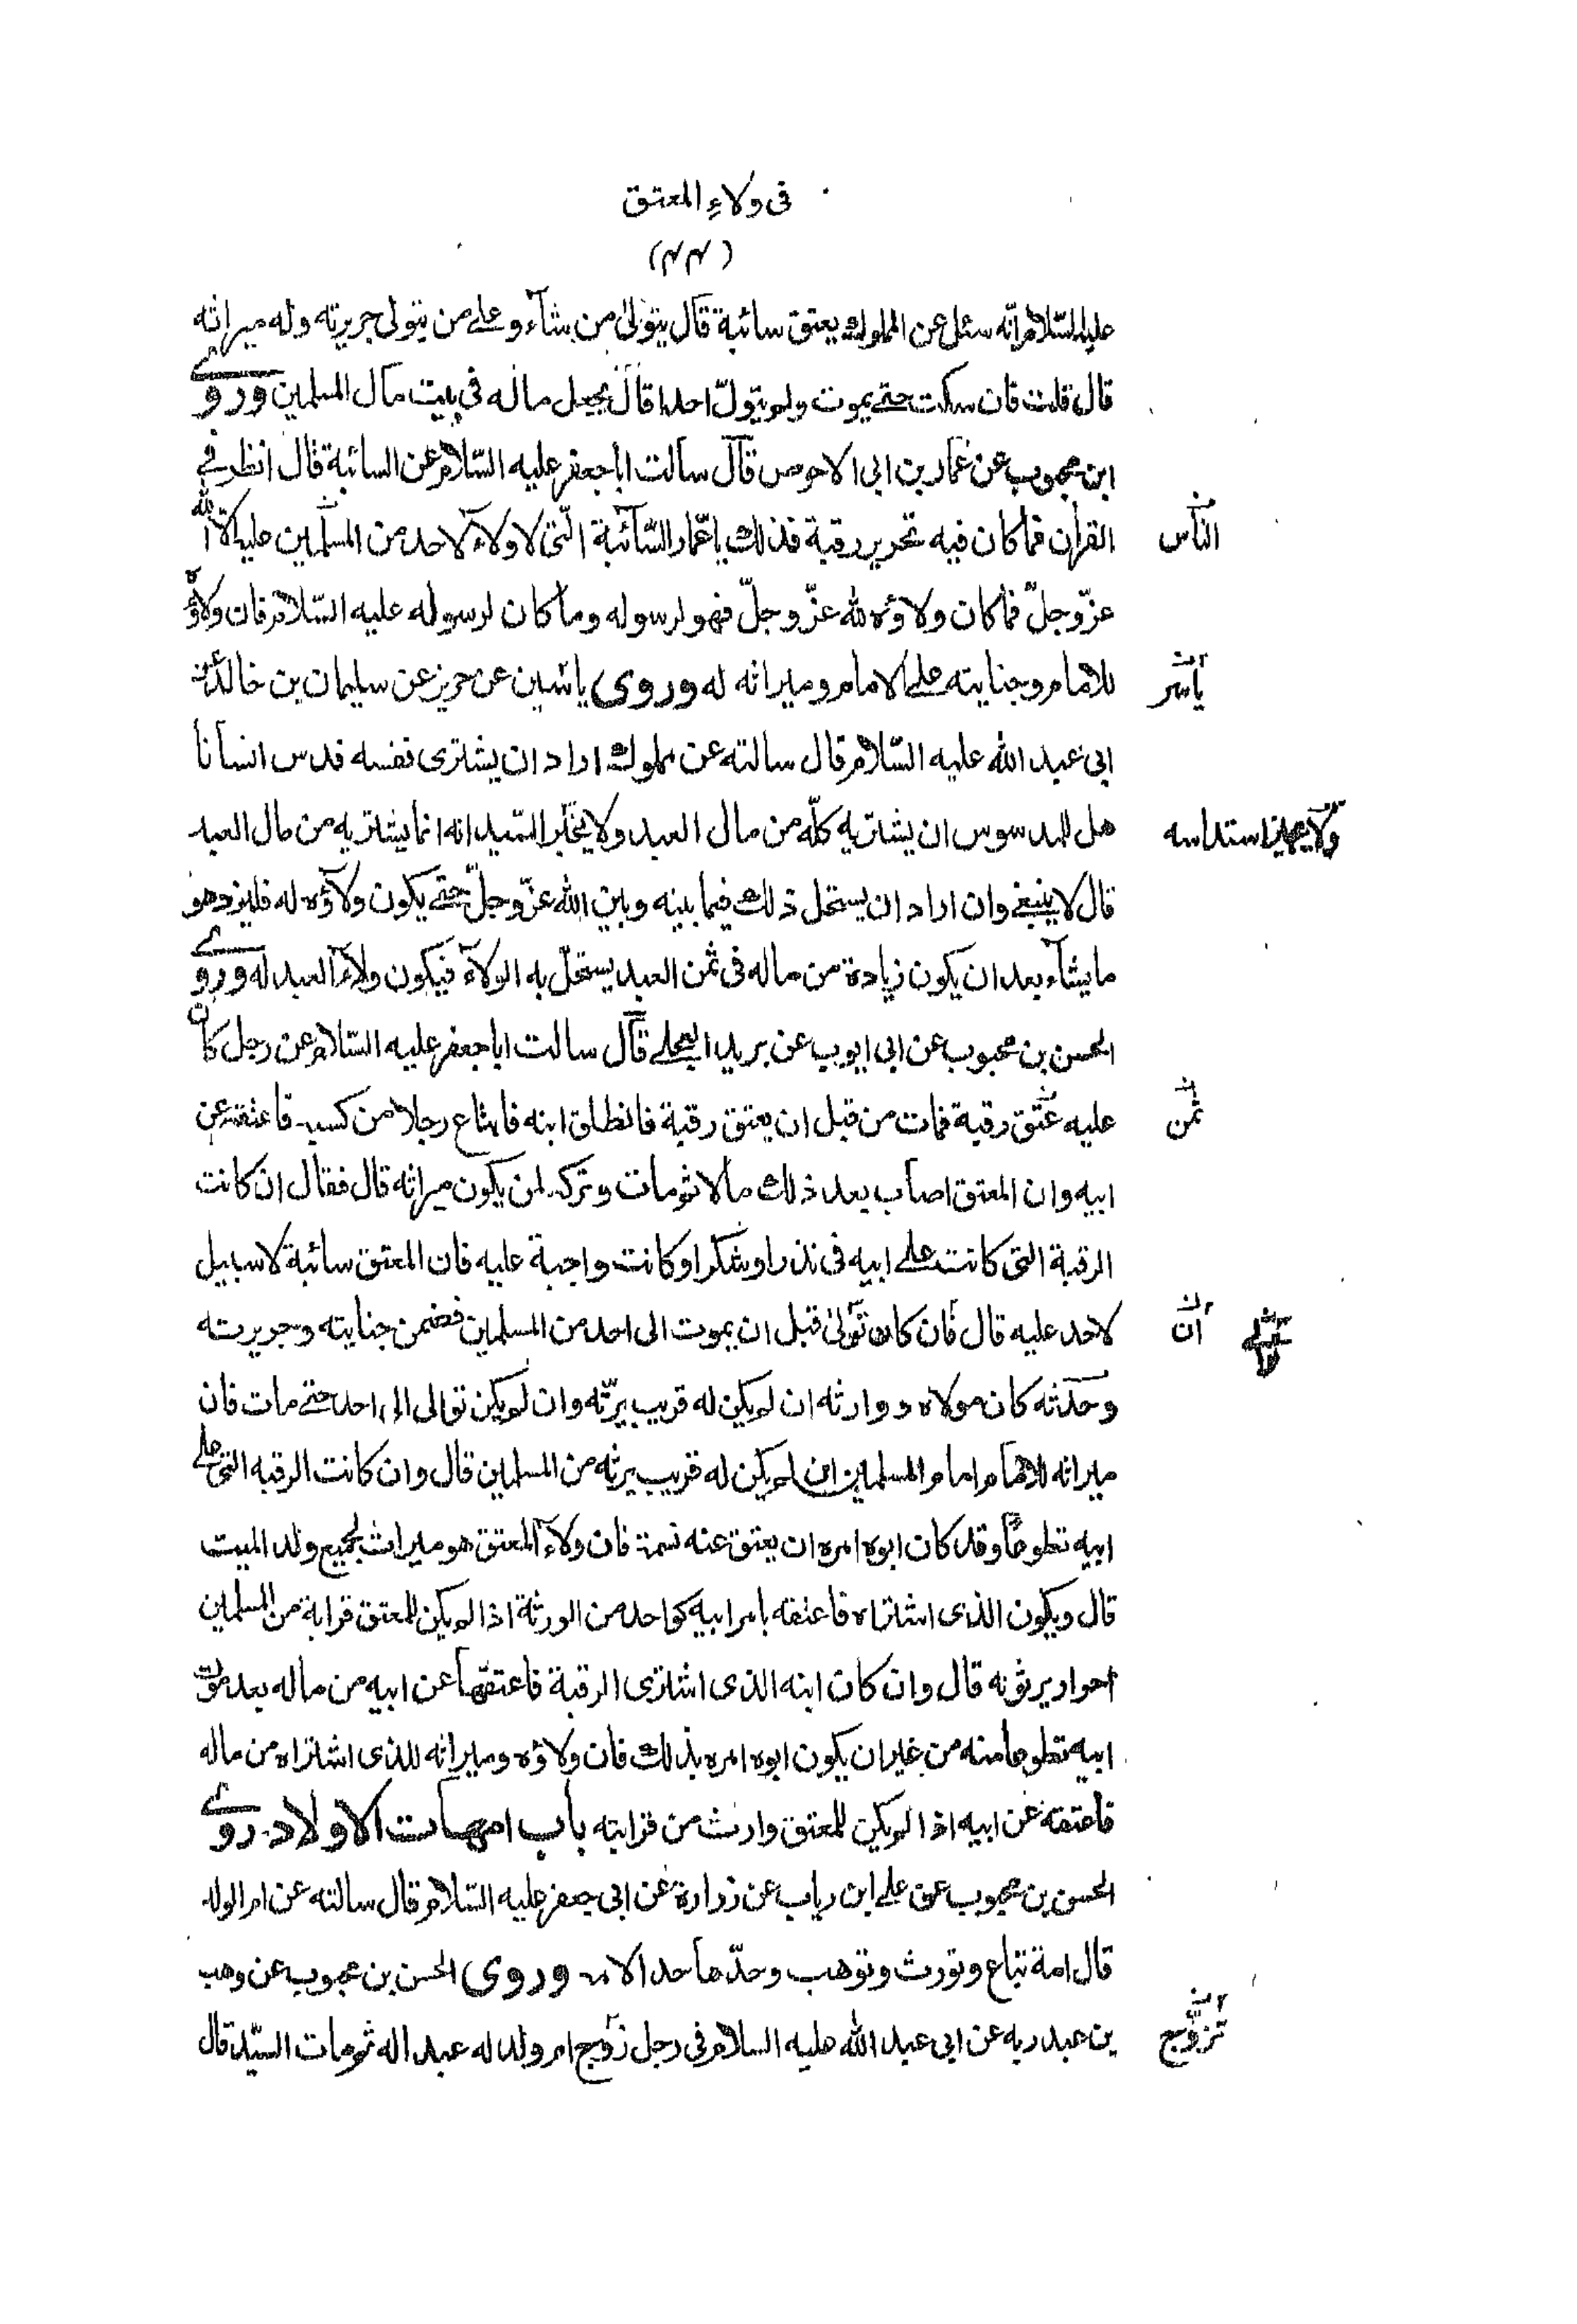 في ولاء المعتق
(٤٤)
عليه السّلام انّه سئل عن المملوك يعتق سائبة قال يتولى من شآء وعلى من يتولى جريرته وله ميراثه
قال قلت فان سكت حتى يموت ولم يتولّ احدا قال يجعل ماله في بيت مال المسلمين وروى
ابن محبوب عن عمار بن ابى الاحوص قال سألت ابا جعفر عليه السّلام عن السائبة قال انظر فى
القرآن فما كان فيه تحرير رقبة فذلك يا عمّار السّائبة الّتى لا ولاء لاحد من المسلمين عليه الا الله
الناس
عزّ وجلّ فما كان ولاؤه لله عزّ وجلّ فهو لرسوله وما كان لرسوله عليه السّلام فان ولاؤه
للامام وجنايته على الامام وميراثه له وروى ياسين عن حريز عن سليمان بن خالد عن
ياسر
ابى عبد الله عليه السّلام قال سالته عن مملوك اراد ان يشترى نفسه فدس انسانا
هل للمدسوس ان يشتريه كلّه من مال العبد ولا يخبر السّيد انه انما يشتريه من مال العبد
قال لا ينبغى وان اراد ان يستحل ذلك فيما بينه وبين الله عزّ وجلّ حتى يكون ولاؤه له فليزد هو
ما يشاء بعد ان يكون زيادة من ماله فى ثمن العبد يستحلّ به الولاء فيكون ولاء العبد له وروى
الحسن بن محبوب عن ابى ايوب عن بريد العجلى قال سالت ابا جعفر عليه السّلام عن رجل كان
عليه عتق رقبة فمات من قبل ان يعتق رقبة فانطلق ابنه فابتاع رجلا من كسبه فاعتقه عن
ابيه وان المعتق اصاب بعد ذلك مالا ثم مات وتركه لمن يكون ميراثه قال فقال ان كانت
الرقبة التى كانت على ابيه فى نذر او شكر او كانت واجبة عليه فان المعتق سائبة لا سبيل
لاحد عليه قال فان كان تولى قبل ان يموت الى احد من المسلمين فضمن جنايته وجريرته
ان
وحدثه كان مولاه ووارثه ان لم يكن له قريب يرثه وان لم يكن توالى الى احد حتى مات فان
ميراثه للامام امام المسلمين ان لم يكن له قريب يرثه من المسلمين قال وان كانت الرقبه التى على
ابيه تطوعا وقد كان ابوه امره ان يعتق عنه نسمة فان ولاء المعتق هو ميراث لجميع ولد الميت
قال ويكون الذى اشتراه فاعتقه بامر ابيه كواحد من الورثة اذا لم يكن للمعتق قرابة من المسلمين
احرار يرثونه قال وان كان ابنه الذى اشترى الرقبة فاعتقها عن ابيه من ماله بعد موت
ابيه تطوعا منه من غير ان يكون ابوه امره بذلك فان ولاؤه وميراثه للذى اشتراه من ماله
فاعتقه عن ابيه اذا لم يكن للمعتق وارث من قرابته باب امهات الاولاد روى
الحسن بن محبوب عن على ابن رياب عن زرارة عن ابى جعفر عليه السّلام قال سالته عن ام الولد
قال امة تباع وتورث وتوهب وحدّها حد الامة وروى الحسن بن محبوب عن وهب
بن عبد ربه عن ابى عبد الله عليه السلام فى رجل زوج ام ولد له عبدا له ثم مات السيّد قال
تزوج